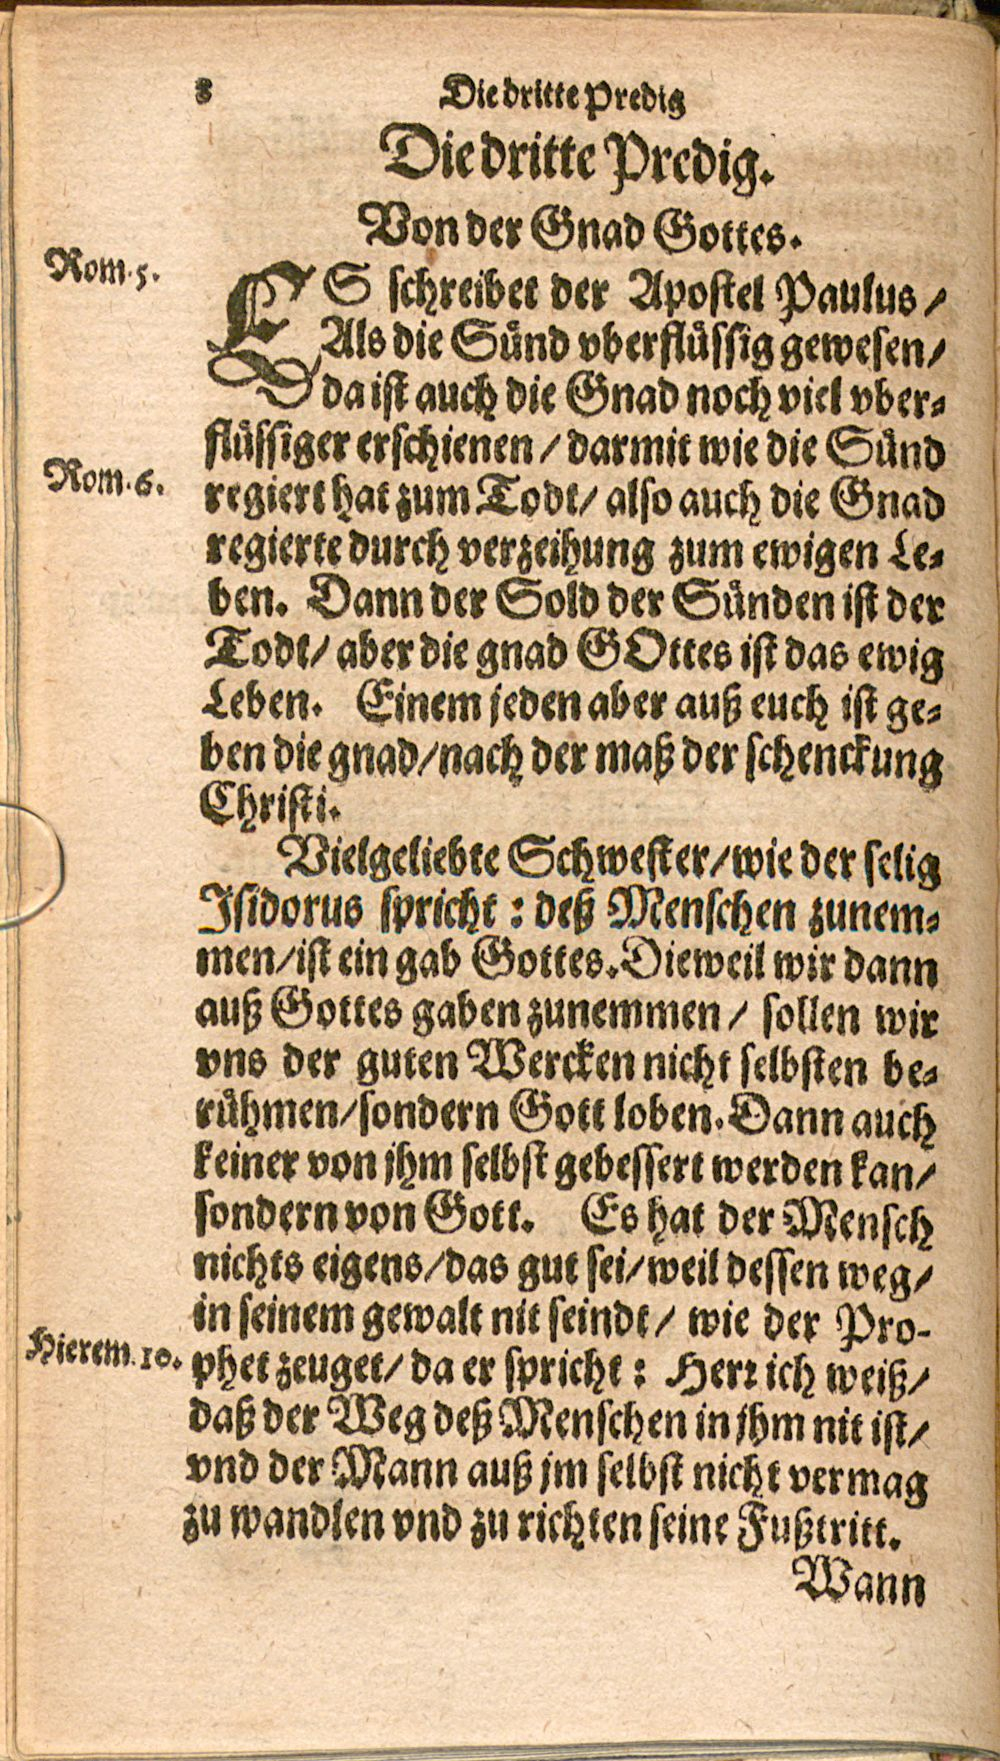 8 Die dritte Predig
Die dritte Predig.
Von der Gnad Gottes.
Rom. 5.
ES schreibet der Apostel Paulus /
Als die Sünd vberflüssig gewesen /
da ist auch die Gnad noch viel vber-
flüssiger erschienen / darmit wie die Sünd
Rom. 6.
regiert hat zum Todt / also auch die Gnad
regierte durch verzeihung zum ewigen Le-
ben. Dann der Sold der Sünden ist der
Todt / aber die gnad GOttes ist das ewig
Leben. Einem jeden aber auß euch ist ge-
ben die gnad / nach der maß der schenckung
Christi.
Vielgeliebte Schwester / wie der selig
Isidorus spricht : deß Menschen zunem-
men / ist ein gab Gottes. Dieweil wir dann
auß Gottes gaben zunemmen / sollen wir
vns der guten Wercken nicht selbsten be-
rühmen / sondern Gott loben. Dann auch
keiner von jhm selbst gebessert werden kan /
sondern von Gott. Es hat der Mensch
nichts eigens / das gut sei / weil dessen weg /
in seinem gewalt nit seindt / wie der Pro-
Hierem. 10.
phet zeuget / da er spricht : Herr ich weiß /
daß der Weg deß Menschen in jhm nit ist /
vnd der Mann auß jm selbst nicht vermag
zu wandlen vnd zu richten seine Fußtritt.
Wann